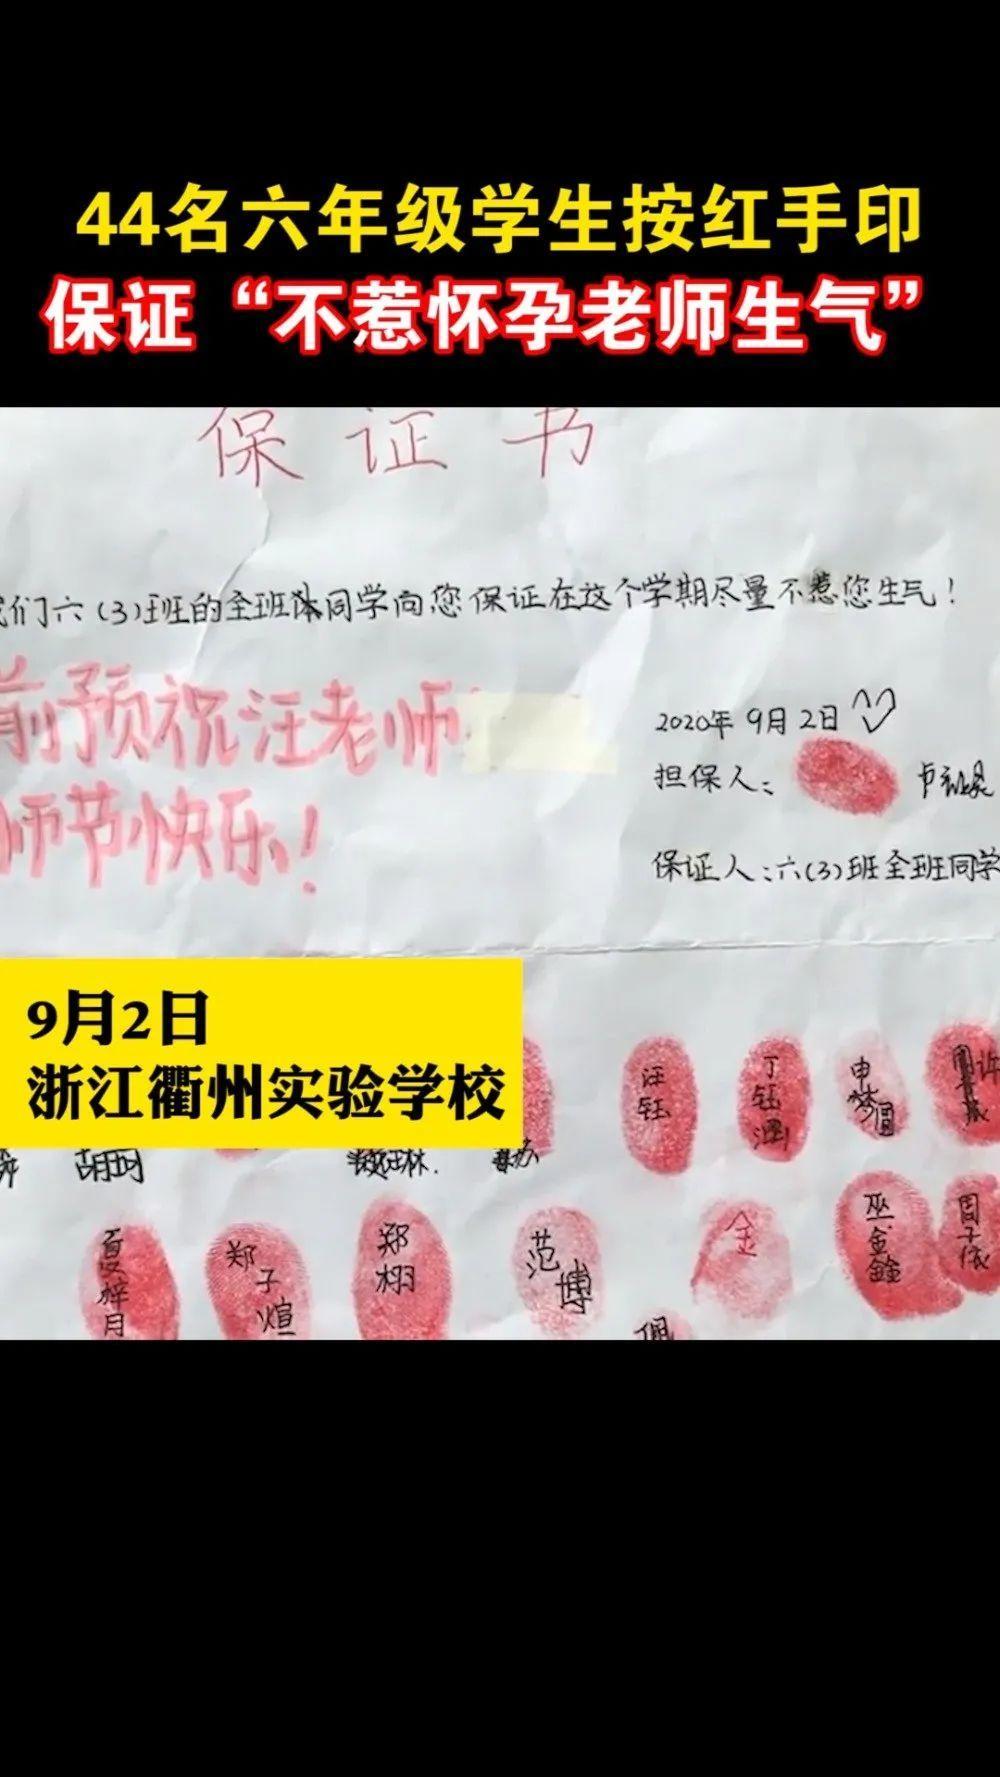 44名六年级学生按红手印
保证“不惹怀孕老师生气”
保证书
我们六(3)班的全班体同学向您保证在这个学期尽量不惹您生气！
前预祝汪老师
师节快乐！
2020年9月2日
担保人：
保证人：六(3)班全班同学
9月2日
浙江衢州实验学校
汪钰
丁钰涵
申梦圆
许
胡玥
夏梓月
郑子煊
郑栩
范博
金
巫金鑫
周子依
佩